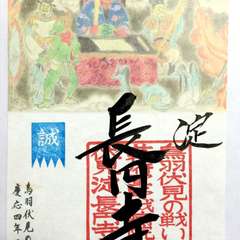 淀
長円寺
鳥羽伏見の戦い
淀長円寺
誠
鳥羽伏見の
慶応四年